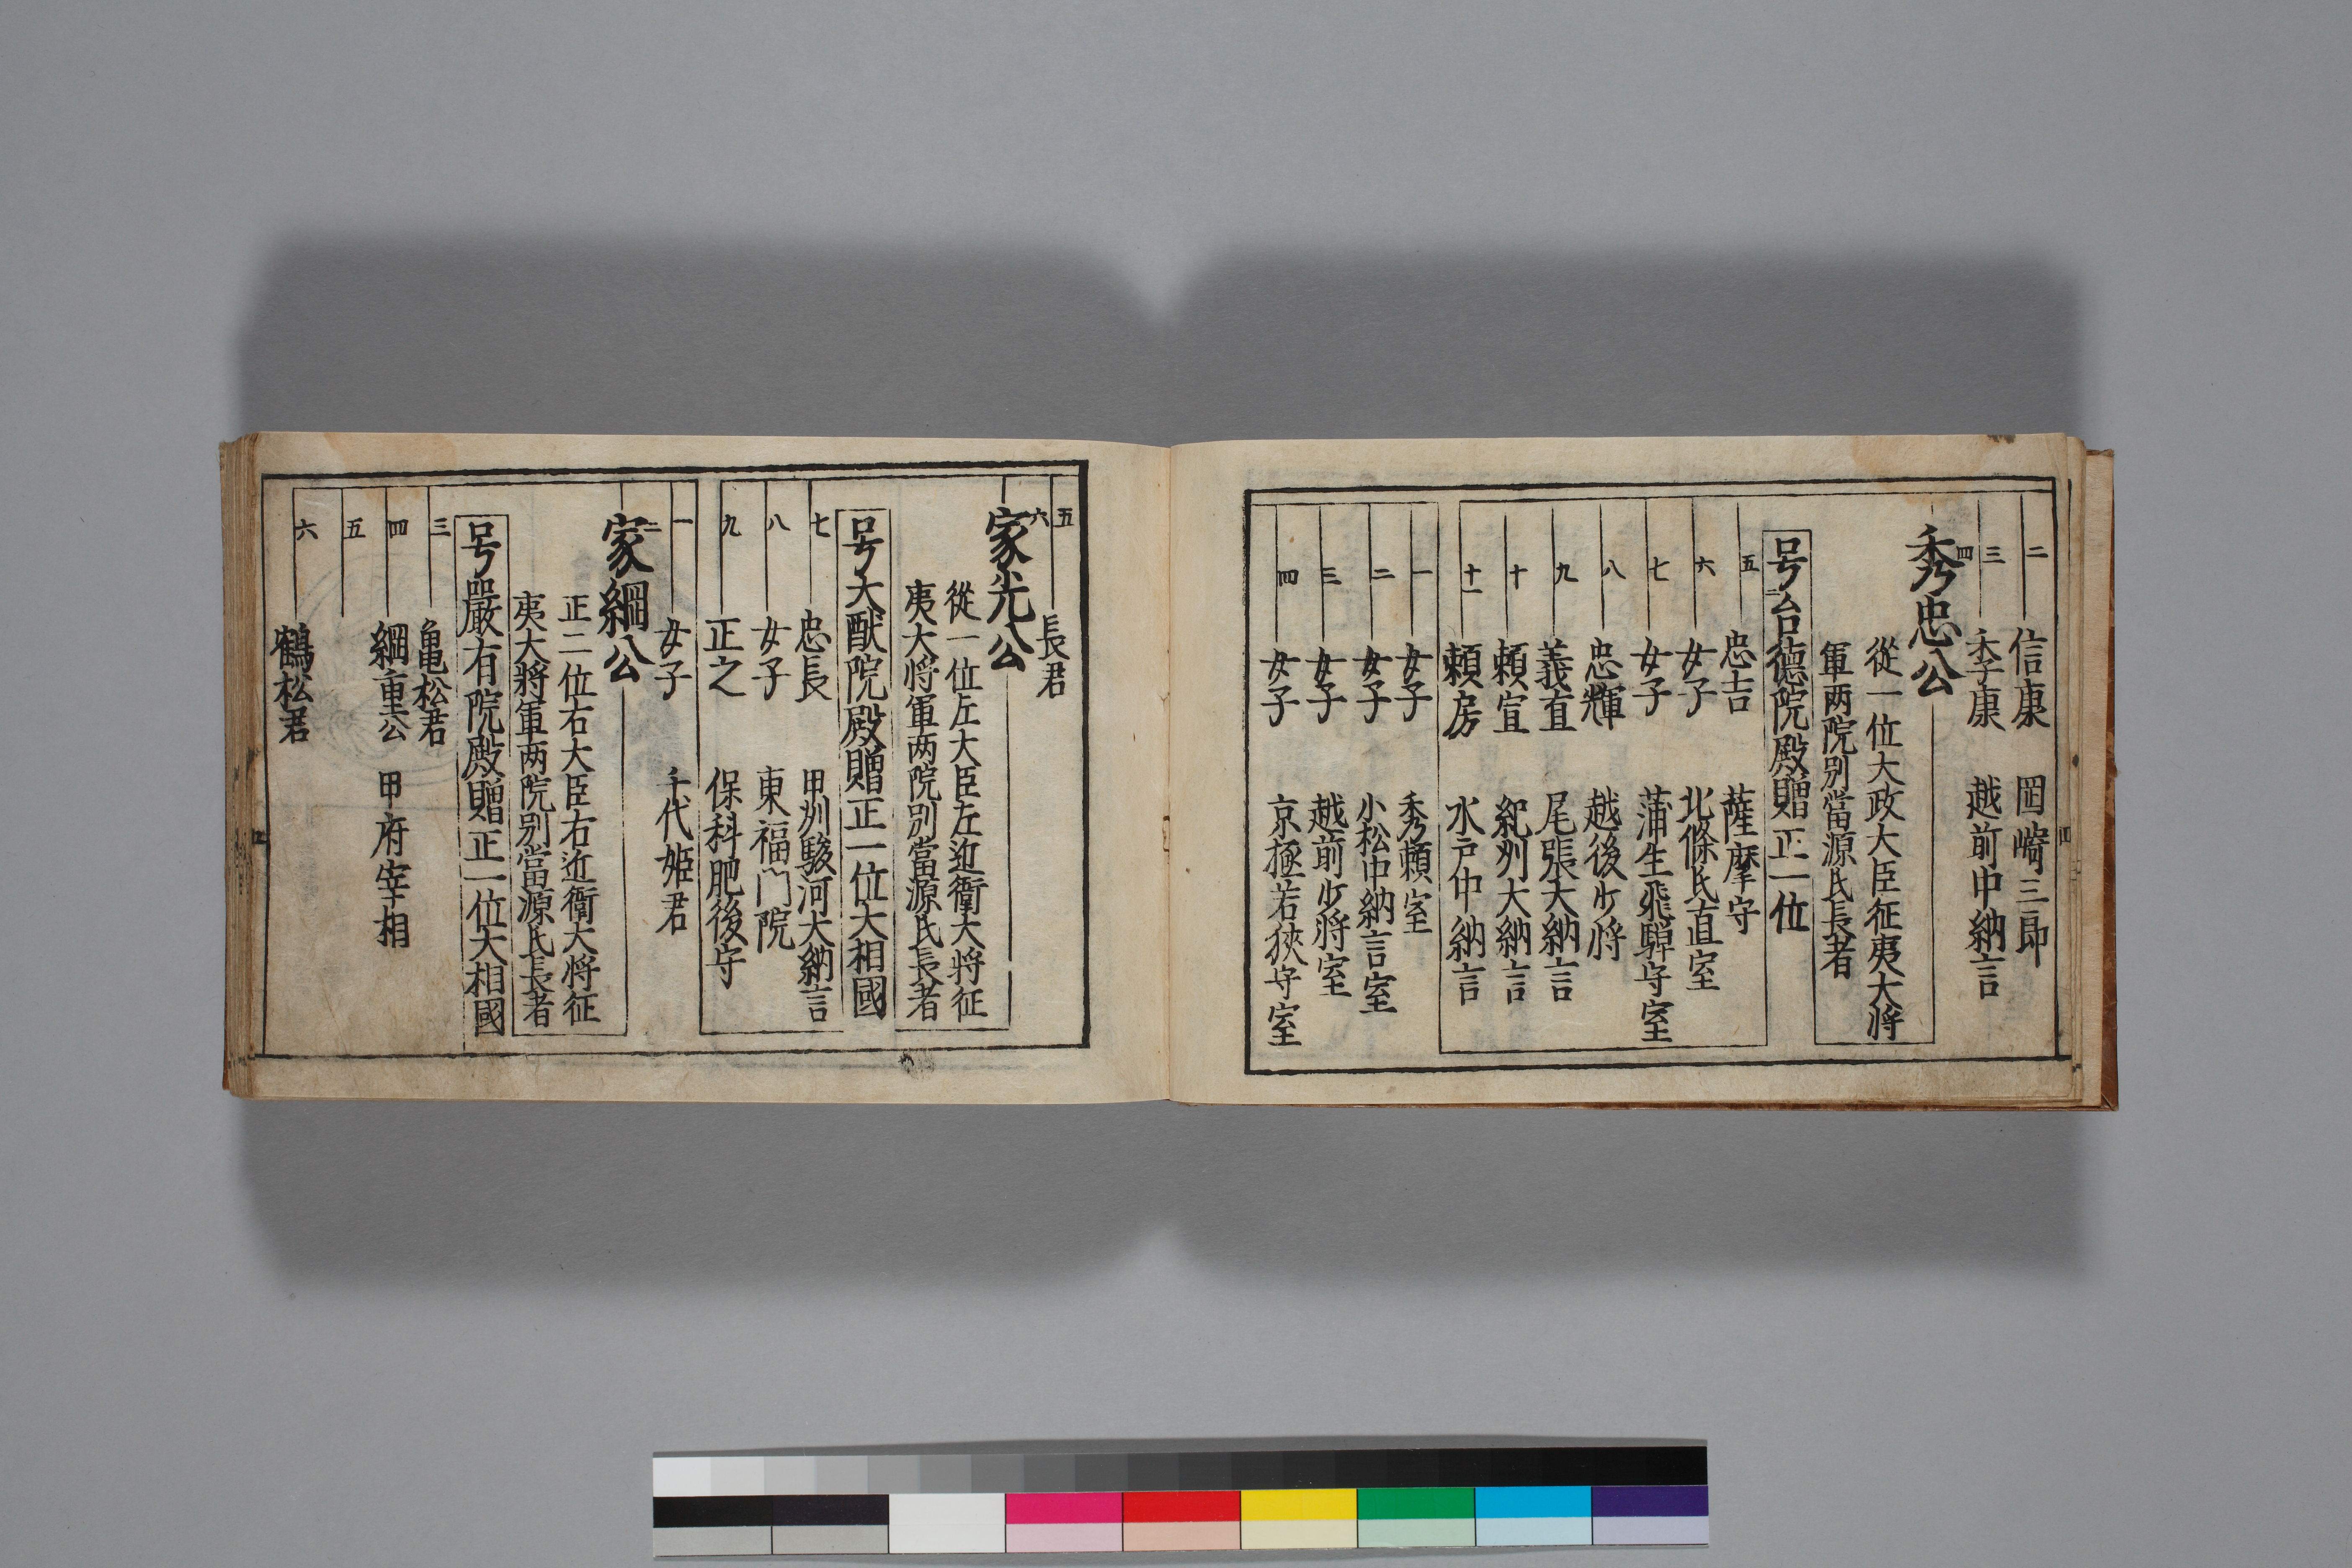 二 信康 岡崎三郎
三 秀康 越前中納言
四 秀忠公
從一位大政大臣征夷大将
軍两院別當源氏長者
号台德院殿贈正一位
五 忠吉 薩摩守
六 女子 北條氏直室
七 女子 蒲生飛騨守室
八 忠輝 越後少将
九 義直 尾張大納言
十 頼宣 紀刕大納言
十一 頼房 水戸中納言
一 女子 秀頼室
二 女子 小松中納言室
三 女子 越前少将室
四 女子 京極若狹守室
五 長君
六 家光公
從一位左大臣左近衛大将征
夷大将軍两院別當源氏長者
号大猷院殿贈正一位大相國
七 忠長 甲刕駿河大納言
八 女子 東福門院
九 正之 保科肥後守
一 女子 千代姫君
二 家綱公
正二位右大臣右近衛大将征
夷大將軍两院別當源氏長者
号嚴有院殿贈正一位大相國
三 亀松君
四 綱重公 甲府宰相
五
六 鶴松君
四